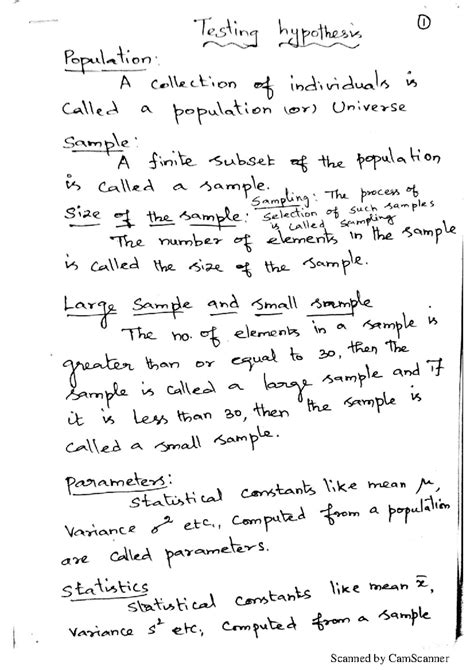 Testing hypothesis
①
Population:
A collection of individuals is
called a population (or) Universe
Sample:
A finite subset of the population
is called a sample.
Sampling: The process of
Size of the sample: Selection of such samples
is called sampling
The number of elements in the sample
is called the size of the sample.
Large Sample and small sample
The no. of elements in a sample is
greater than or equal to 30, then the
sample is called a large sample and if
it is less than 30, then the sample is
called a small sample.
Parameters:
Statistical constants like mean μ,
Variance σ² etc., computed from a population
are called parameters.
Statistics
Statistical constants like mean x̄,
variance s² etc, computed from a sample
Scanned by CamScanner